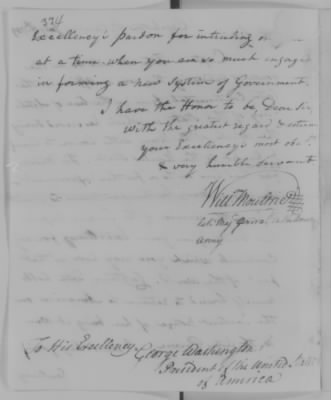 374
Excellency's pardon for intruding on you
at a time when you are so much engaged
in forming a new System of Government.
I have the Honor to be Dear Sir,
with the greatest regard & esteem
your Excellency's most obt.
& very humble servant
Will Moultrie
late Maj
army
To His Excellency George Washington
President of the United States
of America